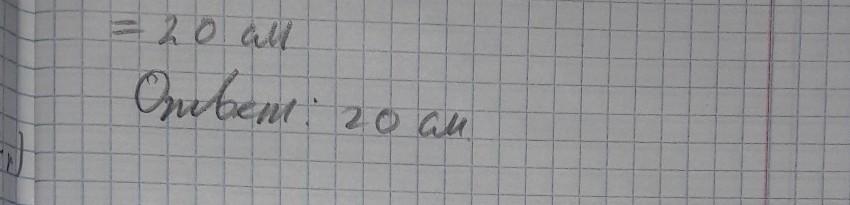 = 20 см
Ответ: 20 см